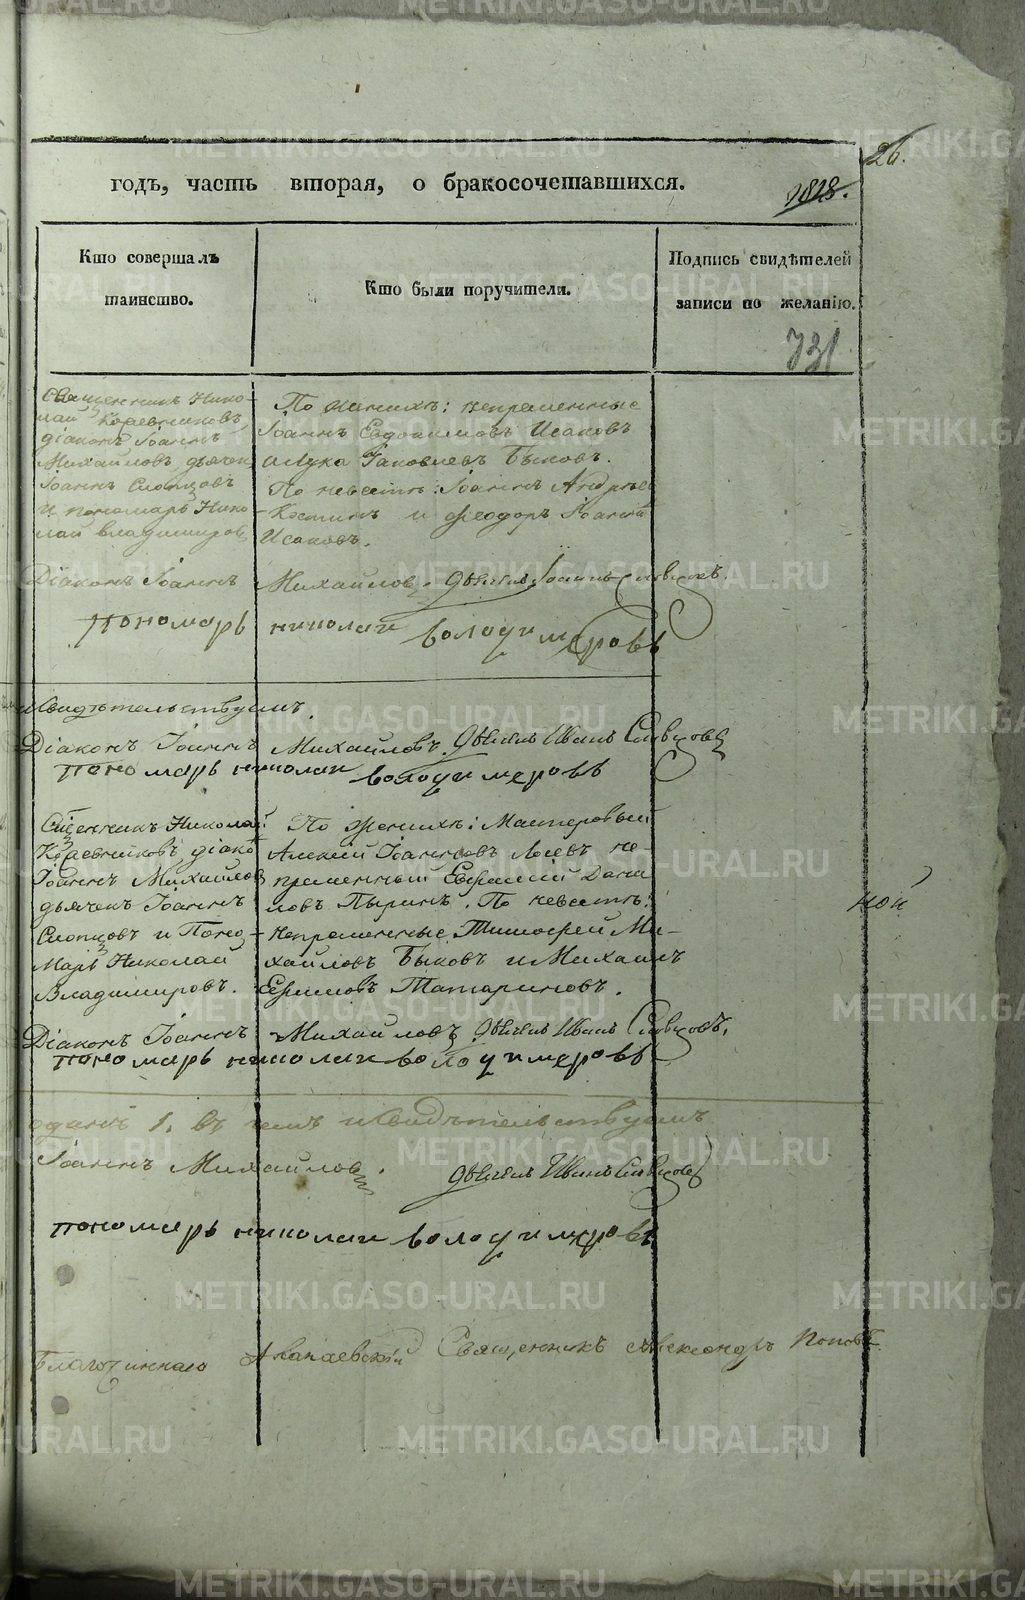 26.
годъ, часть вторая, о бракосочетавшихся.
1828.
Кто совершалъ
таинство.
Кто были поручители.
Подпись свидѣтелей
записи по желанію.
731
Священникъ Нико-
лай
діаконъ Іоаннъ
Михайловъ дьячек
Іоаннъ Слопцовъ
и пономарь Нико
лай Владимиров
По женихѣ: непременные
Іоаннъ Евдокимовъ Исаковъ
и Лука Іаковлевъ Быковъ.
По невестѣ: Іоаннъ Андрѣев
Костинъ и Феодоръ Іоаннов
Исаковъ.
Діаконъ Іоаннъ Михайловъ. Дьячекъ Іоаннъ Словцовъ.
Пономарь николаи володимеровъ
и Свидѣтельствуемъ.
Діаконъ Іоаннъ Михайловъ. Дьячекъ Иванъ Словцовъ
пономарь николаи володимеровъ
Сщенникъ Николай
діако
Іоаннъ Михайлов
дьячекъ Іоаннъ
Слопцовъ и Поно-
марь Николай
Владимировъ.
По женихѣ: Мастеровый
Алексѣй Іоанновъ Лосевъ не-
пременный Евфимій Дани
ловъ Пыринъ. По невестѣ:
непременные Тимофей Ми-
хайловъ Быковъ и Михаилъ
Ефимовъ Татариновъ.
ной
Діаконъ Іоаннъ Михайловъ Дьячекъ Иванъ Словцовъ.
пономарь николаи володимеровъ
одинъ 1. въ чемъ и Свидѣтельствуемъ
Іоаннъ Михайловъ. Дьячекъ Иванъ Словцовъ
пономарь николаи володимеровъ
Благочиннаго Алапаевскій Священникъ Александръ Поповъ
METRIKI.GASO-URAL.RU